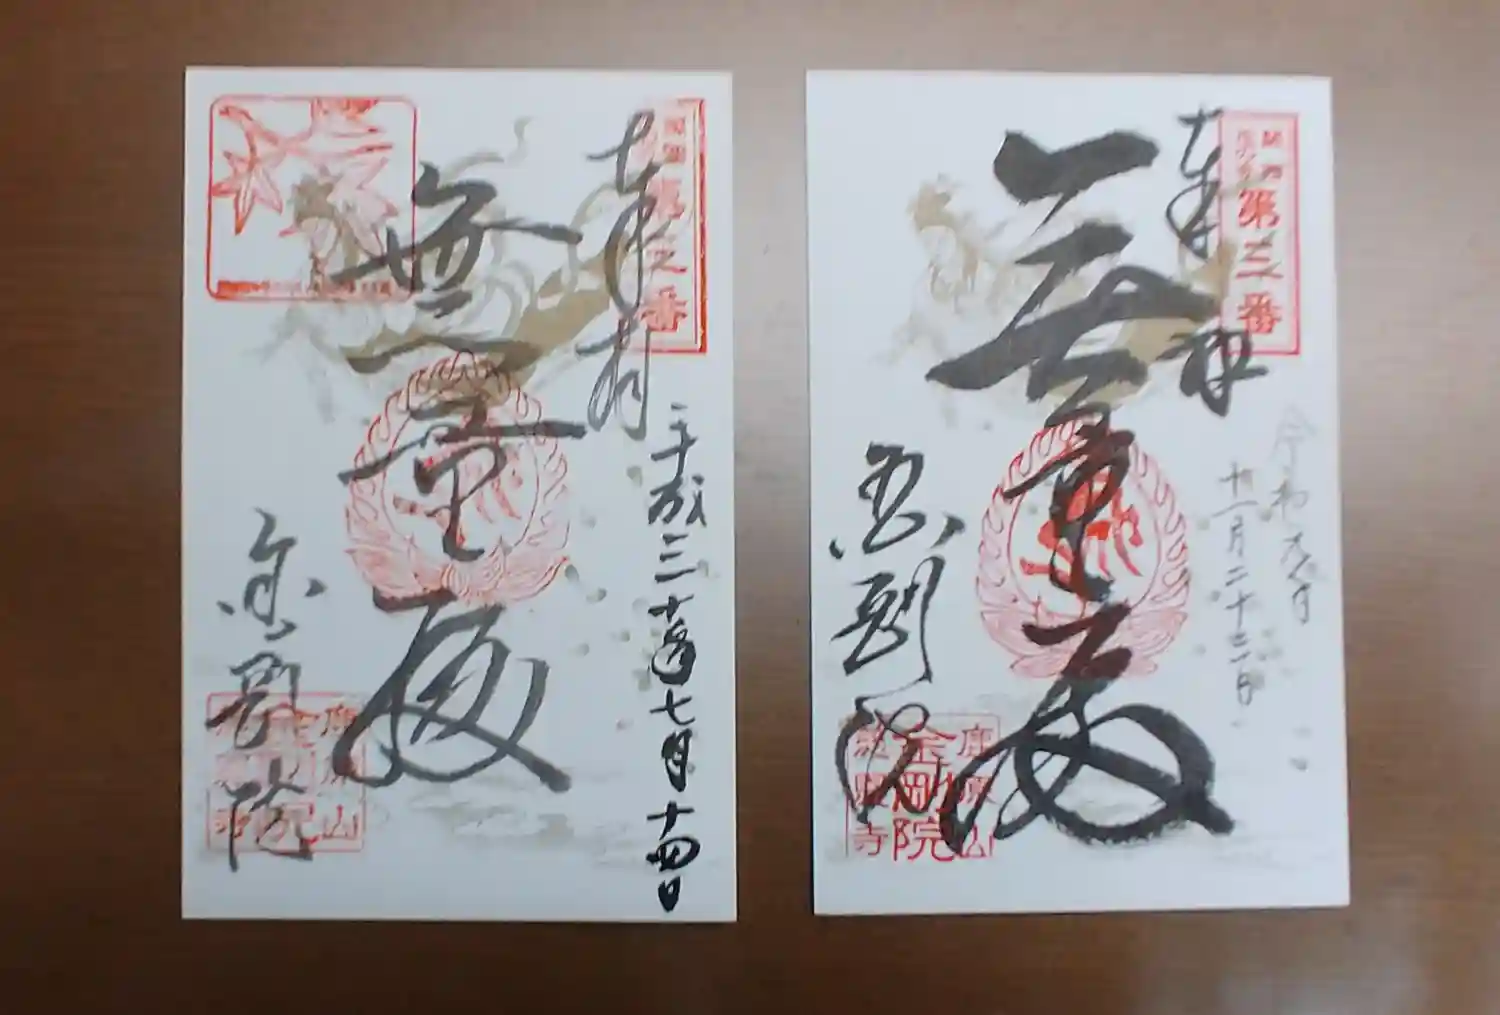 奉拝
第三番
平成三十年七月十四日
無量
金剛院
鹿原山
金剛院
慈恩寺
奉拝
関西
花の寺
第三番
令和元年
十一月二十三日
無量
金剛院
鹿原山
金剛院
慈恩寺